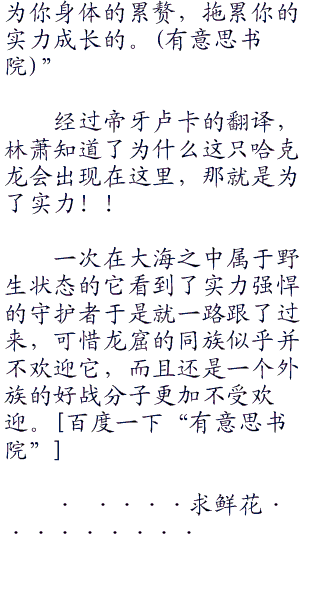 为你身体的累赘，拖累你的
实力成长的。(有意思书
院)”
经过帝牙卢卡的翻译，
林萧知道了为什么这只哈克
龙会出现在这里，那就是为
了实力！！
一次在大海之中属于野
生状态的它看到了实力强悍
的守护者于是就一路跟了过
来，可惜龙窟的同族似乎并
不欢迎它，而且还是一个外
族的好战分子更加不受欢
迎。[百度一下“有意思书
院”]
· ····求鲜花·
········